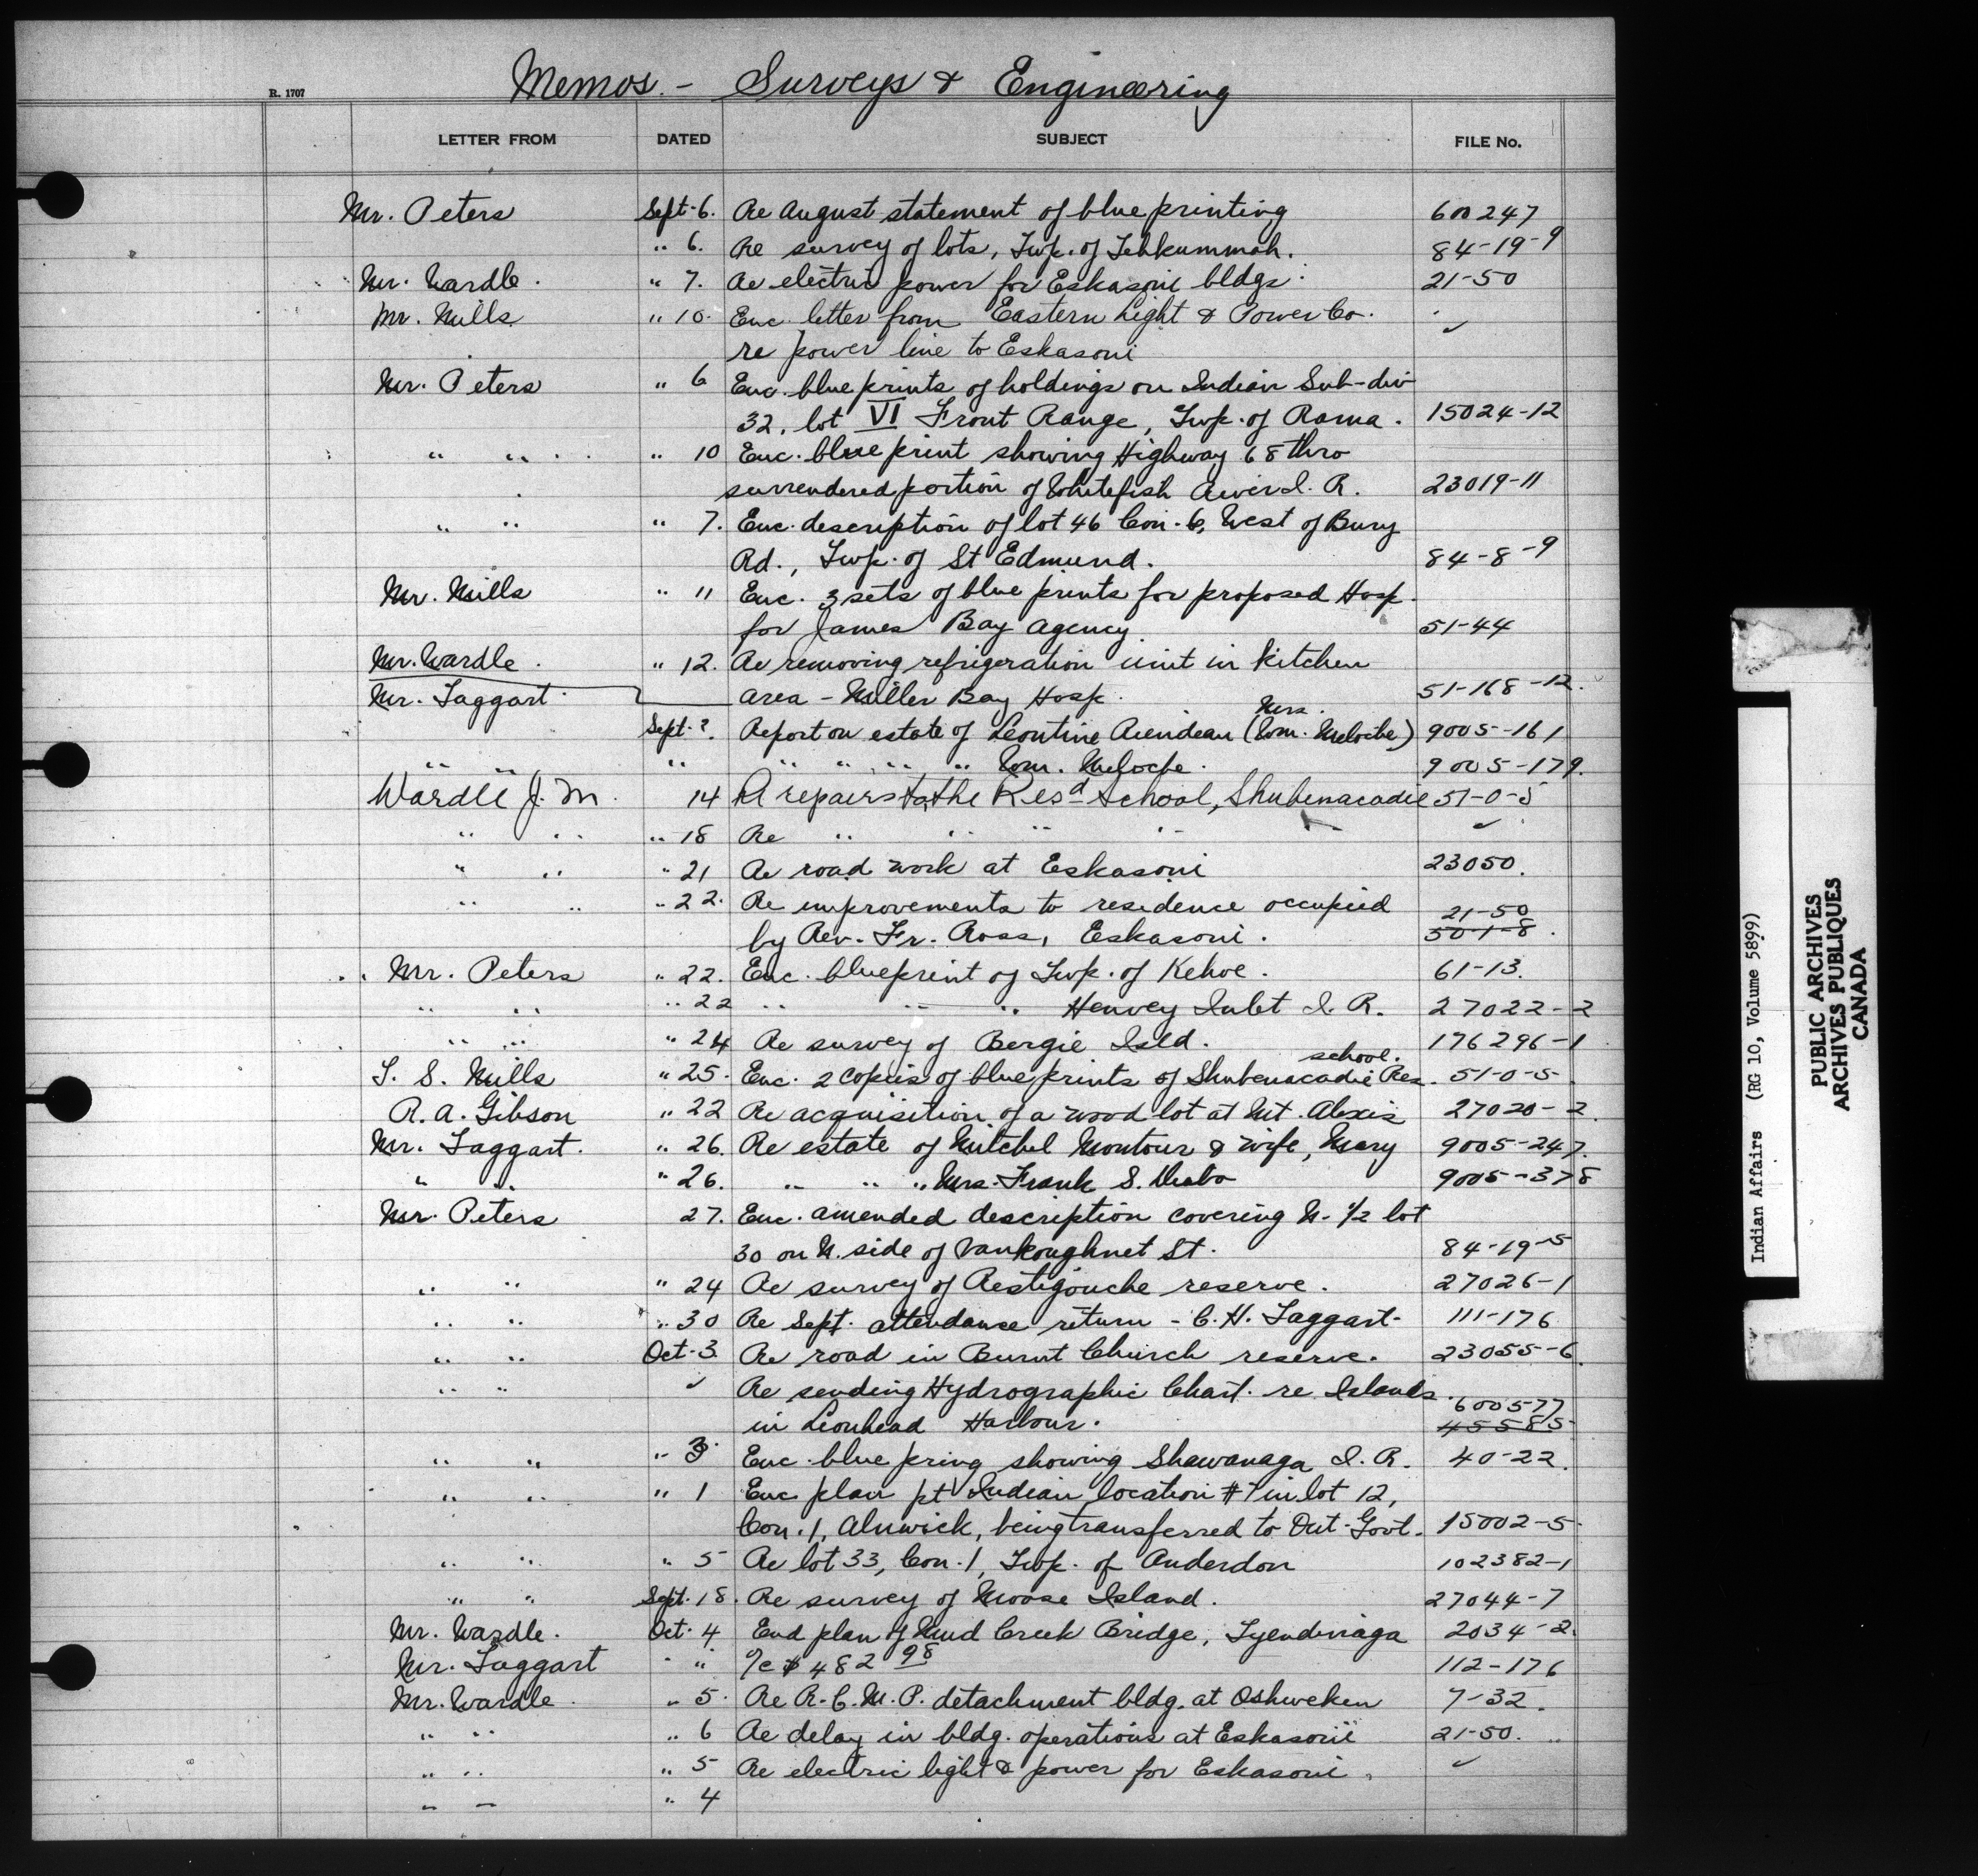 Memos. - Surveys & Engineering
R. 1707
LETTER FROM DATED SUBJECT FILE No.
Mr. Peters Sept. 6. Re August statement of blue printing 600247
" 6. Re survey of lots, Twp. of Tehkummah. 84-19-9
Mr. Wardle. " 7. Re electric power for Eskasoni bldgs. 21-50
Mr. Mills " 10. Enc. letter from Eastern Light & Power Co. ✓
re power line to Eskasoni
Mr. Peters " 6 Enc. blue prints of holdings on Indian Sub-div
32, lot VI Front Range, Twp. of Rama. 15024-12
" " " 10 Enc. blue print showing Highway 68 thro
surrendered portion of Whitefish River I. R. 23019-11
" " " 7. Enc. description of lot 46 Con. 6, West of Bury
Rd., Twp. of St Edmund. 84-8-9
Mr. Mills " 11 Enc. 3 sets of blue prints for proposed Hosp.
for James Bay Agency. 51-44
Mr. Wardle. " 12. Re removing refrigeration unit in kitchen
Mr. Taggart. area - Miller Bay Hosp. 51-168-12.
Mrs.
Sept. ?. Report on estate of Leontine (Wm. Meloche) 9005-161
" " " " " " " Wm. Meloche. 9005-179.
Wardle J. M. 14 Re repairs to the Resd School, Shubenacadie 51-0-5
" " " 18 Re " " " " ✓
" " " 21 Re road work at Eskasoni 23050.
" " " 22. Re improvements to residence occupied 21-50
by Rev. Fr. Ross, Eskasoni. 50-1-8.
Mr. Peters " 22. Enc. blueprint of Twp. of Kehoe. 61-13.
" " " 22 " " " Henvey Inlet I. R. 27022-2
" " " 24 Re survey of Bergie Isld. 176296-1
school.
T. S. Mills " 25. Enc. 2 copies of blue prints of Shubenacadie Res. 51-0-5
R. A. Gibson " 22 Re acquisition of a wood lot at Mt. Alexis 27020-2.
Mr. Taggart. " 26. Re estate of Mitchel Montour & wife, Mary 9005-247.
" " " 26. " " " Mrs. Frank S. 9005-378
Mr. Peters 27. Enc. amended description covering N. 1/2 lot
30 on N. side of Vankoughnet St. 84-19-5
" " " 24 Re survey of Restigouche reserve. 27026-1
" " " 30 Re Sept. attendance return - C. H. Taggart. 111-176
" " Oct. 3. Re road in Burnt Church reserve. 23055-6.
" " ✓ Re sending Hydrographic Chart. re Islands. 600577
in Lionhead Harbour. 45585
" " " 3. Enc. blue pring showing Shawanaga I. R. 40-22.
" " " 1 Enc plan pt Indian location #7 in lot 12,
Con. 1, Alnwick, being transferred to Ont. Govt. 15002-5.
" " " 5 Re lot 33, Con. 1, Twp. of Anderdon 102382-1
" " Sept. 18. Re survey of Moose Island. 27044-7
Mr. Wardle. Oct. 4 End plan of Mud Creek Bridge, Tyendinaga 2034-2.
Mr. Taggart " " %c $482 98 112-176
Mr. Wardle. " 5. Re R. C. M. P. detachment bldg. at Oshweken 7-32.
" " " 6 Re delay in bldg. operations at Eskasoni 21-50.
" " " 5 Re electric light & power for Eskasoni. ✓
" " " 4
Indian Affairs (RG 10, Volume 5899)
PUBLIC ARCHIVES
ARCHIVES PUBLIQUES
CANADA